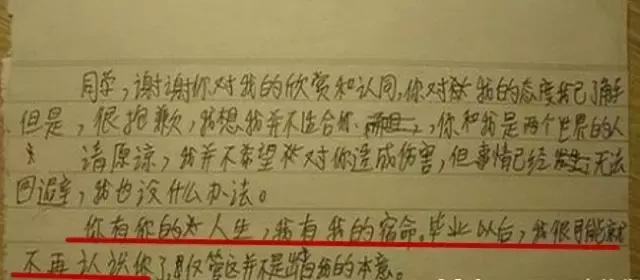 同学,谢谢你对我的欣赏和认同,你对我的态度我已了解
但是,很抱歉,我想我并不适合你,你和我是两个世界的人
请原谅,我并不希望对你造成伤害,但事情已经发生,无法
回避,我也没什么办法。
你有你的人生,我有我的宿命。毕业以后,我很可能就
不再认识你了,尽管这并不是出自我的本意。